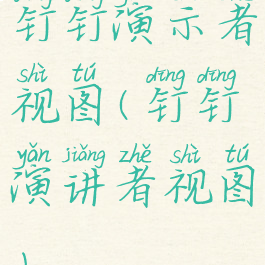 钉钉演示者
shì tú dīng dīng
视图(钉钉
yǎn jiǎng zhě shì tú
演讲者视图
)